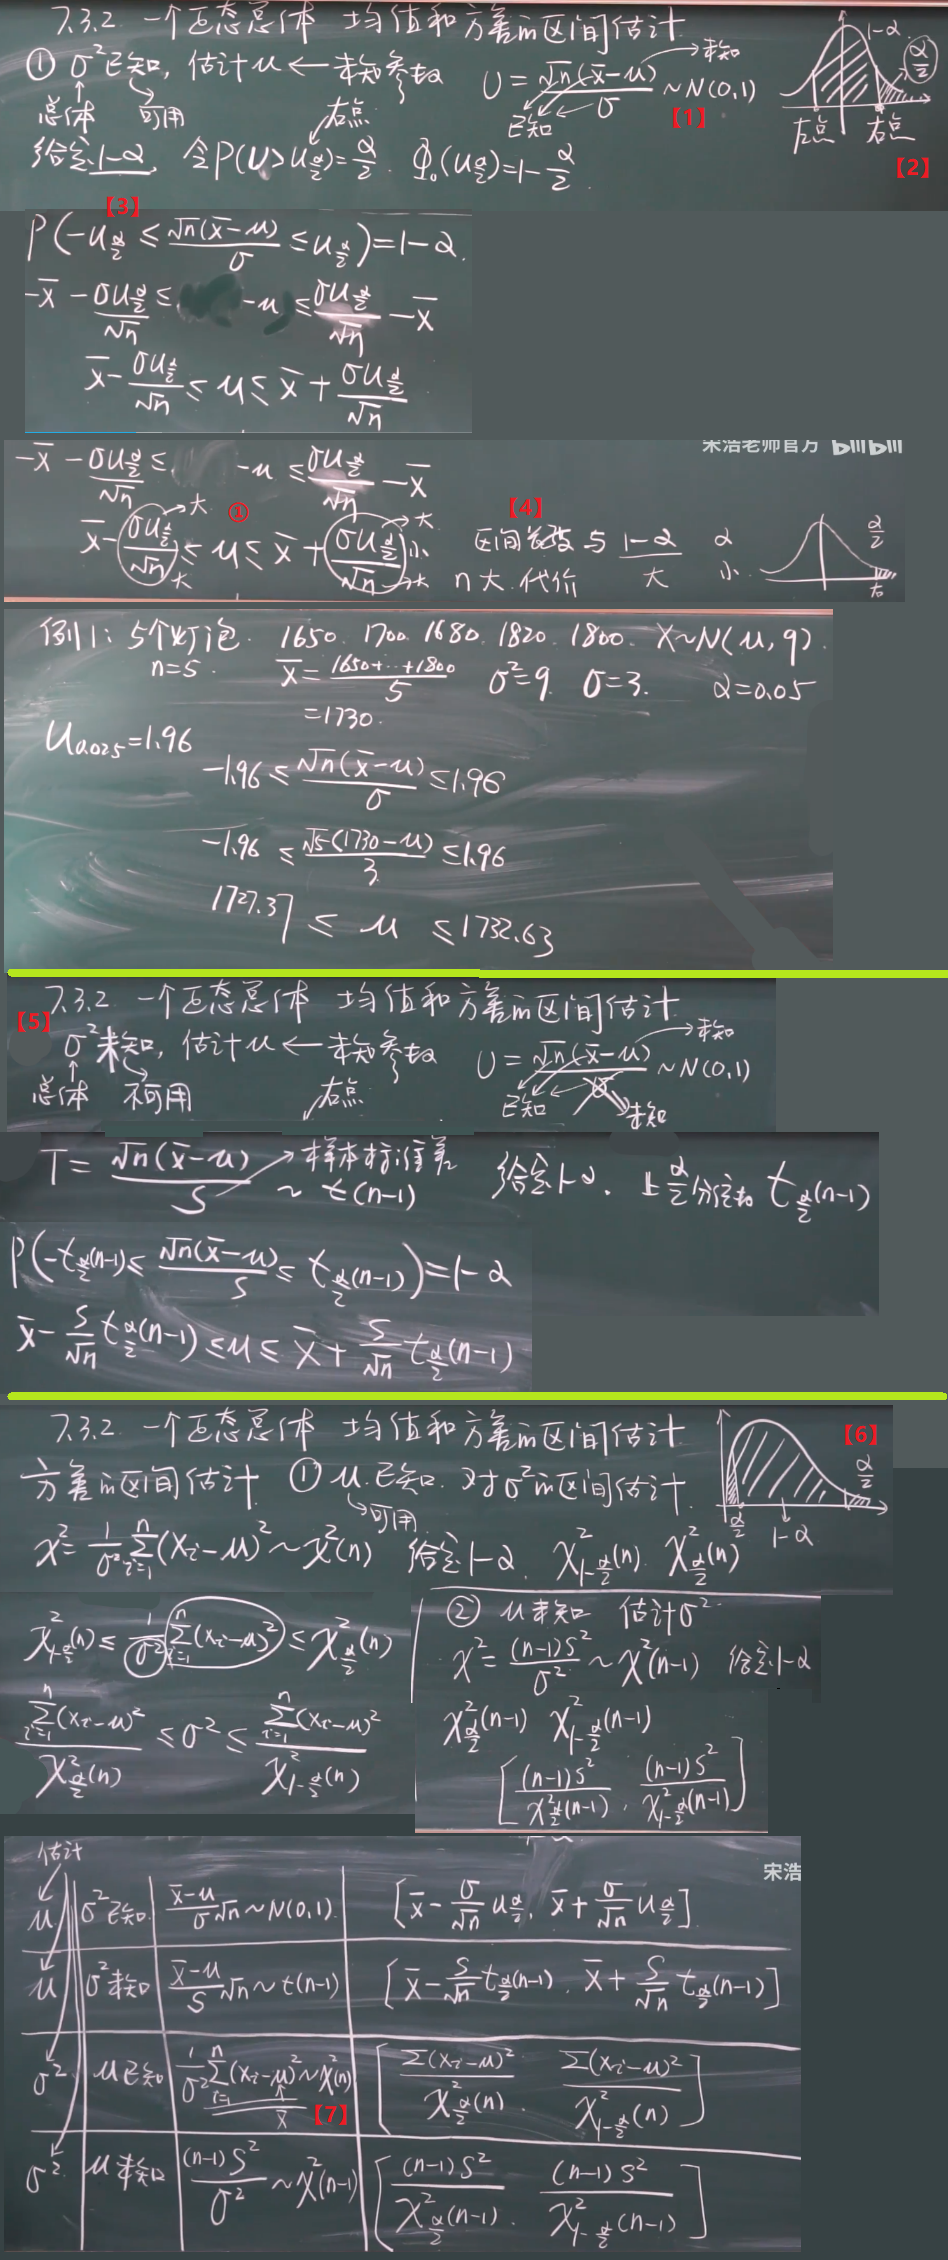 7.3.2. 一个正态总体 均值和方差的区间估计
① σ²已知, 估计μ ← 未知参数
总体 可用 右点
U = √n(x̄-μ)/σ ~ N(0,1)
未知
已知
【1】
1-α α/2
左点 右点
【2】
给定1-α, 令P(U>u_{α/2})=α/2. Φ₀(u_{α/2})=1-α/2.
【3】
P(-u_{α/2} ≤ √n(x̄-μ)/σ ≤ u_{α/2})=1-α.
-x̄ - σu_{α/2}/√n ≤ -μ ≤ σu_{α/2}/√n - x̄
x̄ - σu_{α/2}/√n ≤ μ ≤ x̄ + σu_{α/2}/√n
宋浩老师官方 bilibili
-x̄ - σu_{α/2}/√n ≤ -μ ≤ σu_{α/2}/√n - x̄
① 【4】
x̄ - σu_{α/2}/√n ≤ μ ≤ x̄ + σu_{α/2}/√n
大 大 大 小 大
区间长度与 1-α α α/2
大 小 右
n大 代价
例1: 5个灯泡. 1650. 1700. 1680. 1820. 1800. X~N(μ,9).
n=5. x̄ = (1650+…+1800)/5 σ²=9. σ=3. α=0.05
=1730.
u_{0.025}=1.96
-1.96 ≤ √n(x̄-μ)/σ ≤ 1.96
-1.96 ≤ √5(1730-μ)/3 ≤ 1.96
1727.37 ≤ μ ≤ 1732.63
7.3.2. 一个正态总体 均值和方差的区间估计
【5】
σ²未知, 估计μ ← 未知参数
总体 不可用 右点
U = √n(x̄-μ)/σ ~ N(0,1)
未知
已知 未知
T = √n(x̄-μ)/S ~ t(n-1)
样本标准差
给定1-α. 上α/2分位数 t_{α/2}(n-1)
P(-t_{α/2}(n-1) ≤ √n(x̄-μ)/S ≤ t_{α/2}(n-1))=1-α
x̄ - S/√n t_{α/2}(n-1) ≤ μ ≤ x̄ + S/√n t_{α/2}(n-1)
7.3.2. 一个正态总体 均值和方差的区间估计
【6】
α/2
α/2 1-α
方差的区间估计 ① μ已知. 对σ²的区间估计.
可用
χ² = 1/σ² Σ_{i=1}^{n}(x_i-μ)² ~ χ²(n) 给定1-α. χ²_{1-α/2}(n). χ²_{α/2}(n)
χ²_{1-α/2}(n) ≤ 1/σ² Σ_{i=1}^{n}(x_i-μ)² ≤ χ²_{α/2}(n)
Σ_{i=1}^{n}(x_i-μ)²/χ²_{α/2}(n) ≤ σ² ≤ Σ_{i=1}^{n}(x_i-μ)²/χ²_{1-α/2}(n)
② μ未知 估计σ².
χ² = (n-1)S²/σ² ~ χ²(n-1) 给定1-α
χ²_{α/2}(n-1) χ²_{1-α/2}(n-1)
[(n-1)S²/χ²_{α/2}(n-1), (n-1)S²/χ²_{1-α/2}(n-1)]
估计
宋浩
μ σ²已知. (x̄-μ)/σ √n ~ N(0,1). [x̄ - σ/√n u_{α/2}, x̄ + σ/√n u_{α/2}].
μ σ²未知 (x̄-μ)/S √n ~ t(n-1) [x̄ - S/√n t_{α/2}(n-1), x̄ + S/√n t_{α/2}(n-1)]
σ² μ已知 1/σ² Σ_{i=1}^{n}(x_i-μ)² ~ χ²(n) [Σ(x_i-μ)²/χ²_{α/2}(n), Σ(x_i-μ)²/χ²_{1-α/2}(n)]
x̄ 【7】
σ² μ未知 (n-1)S²/σ² ~ χ²(n-1) [(n-1)S²/χ²_{α/2}(n-1), (n-1)S²/χ²_{1-α/2}(n-1)]